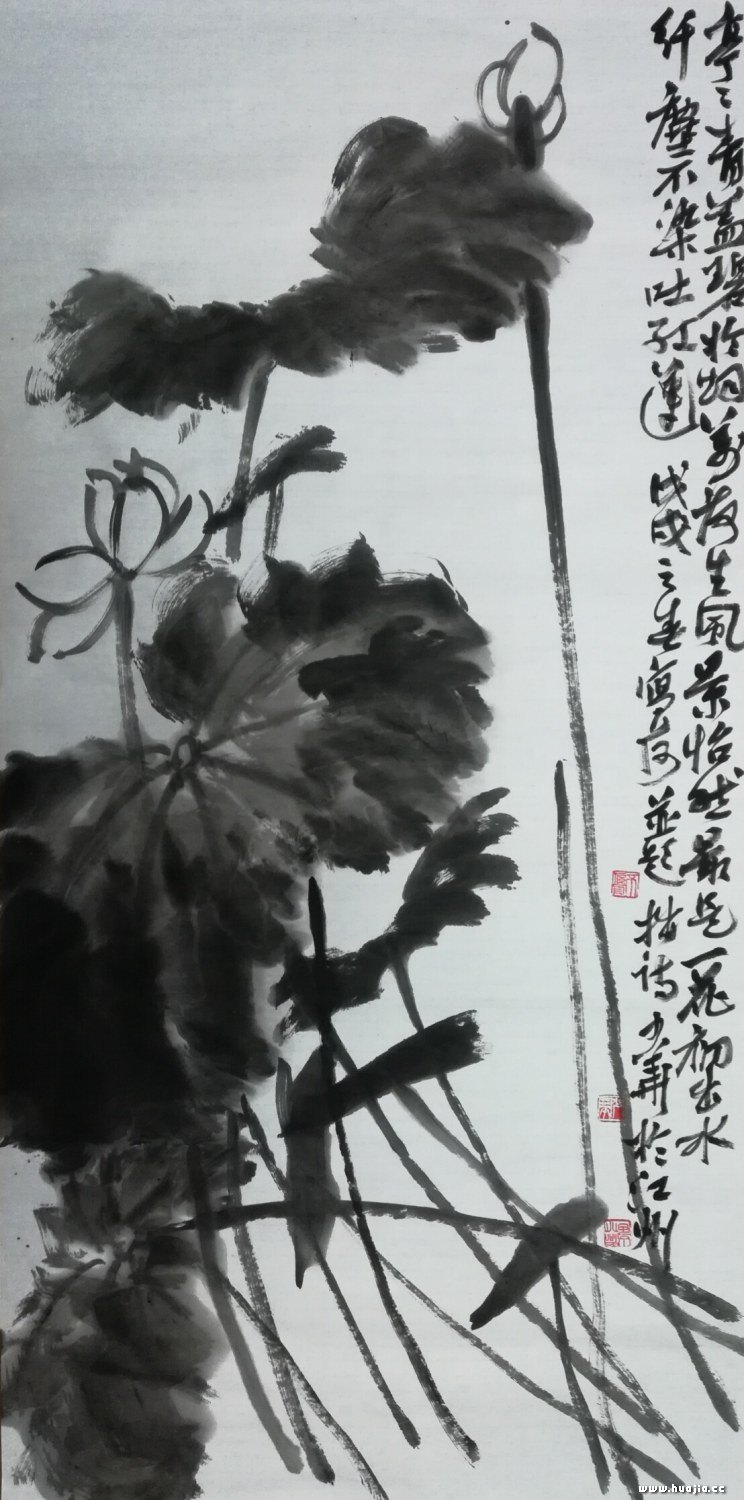 亭々青盖碧於烟万荷生风景怡然最是一花初出水
纤尘不染吐红莲 戊戌之春写荷並题拙诗少華於江州
www.huajia.cc